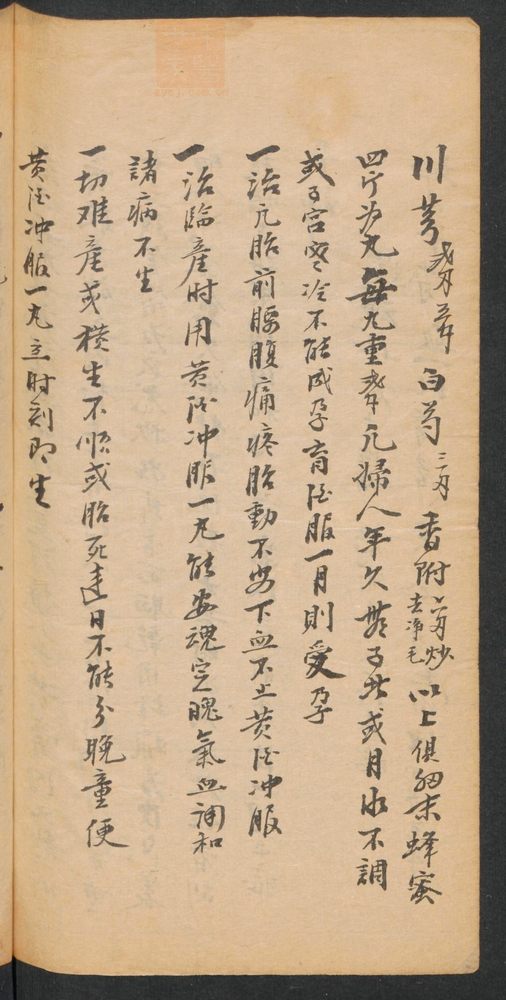 川芎 白芍 三两 香附 二两炒去净毛 以上俱細末蜂蜜
四斤为丸每丸重 凡婦人年久無子者或月水不調
或子宫寒冷不能成孕育酒服一月則受孕
一治凡胎前腰腹痛疼胎動不安下血不止黄酒冲服
一治臨産时用黄酒冲服一丸能安魂定魄氣血调和
諸病不生
一切难産或横生不順或胎死連日不能分晚童便
黄酒冲服一丸立时刻即生